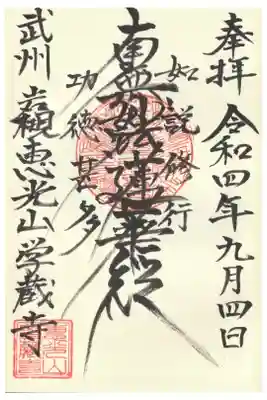 奉拝 令和四年九月四日
如説修行
南無妙法蓮華経
功徳甚多
武州 恵光山学蔵寺